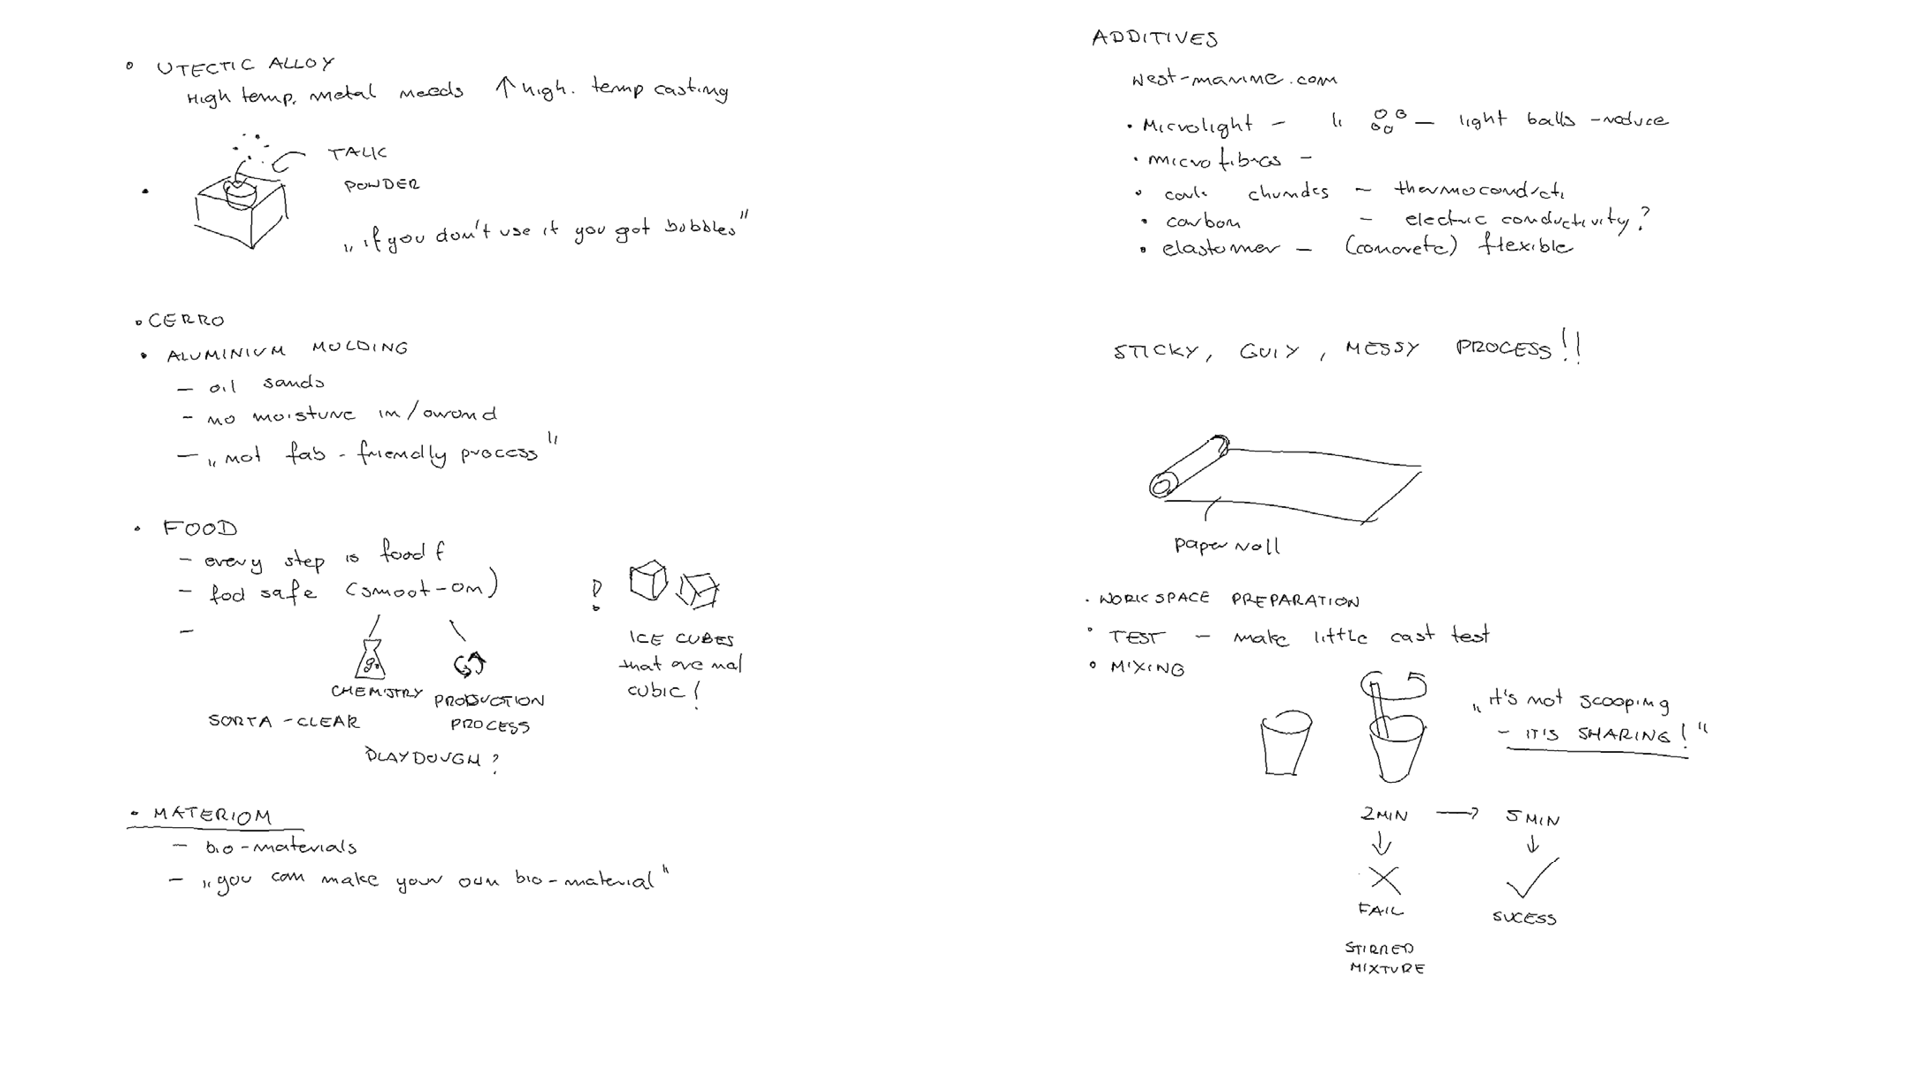 • UTECTIC ALLOY
High temp. metal needs ↑ high. temp casting
• TALK
POWDER
„if you don't use it you got bobbles"
• CERRO
• ALUMINIUM MOLDING
– oil sands
– no moisture in/around
– „not fab-friendly process"
• FOOD
– every step is food f
– fod safe (smoot-on)
–
CHEMISTRY
PRODUCTION
PROCESS
SORTA-CLEAR
PLAYDOUGH?
ICE CUBES
that are not
cubic!
• MATERIOM
– bio-materials
– „you can make your own bio-material"
ADDITIVES
west-marine.com
• Microlight – light balls – reduce
• microfibres –
• chundes – thermoconducti
• carbon – electric conductivity?
• elastomer – (concrete) flexible
STICKY, GUIY, MESSY PROCESS!!
paper roll
• WORKSPACE PREPARATION
• TEST – make little cast test
• MIXING
„it's not scooping
– IT'S SHARING!"
2 MIN → 5 MIN
FAIL
SUCESS
STIRRED
MIXTURE